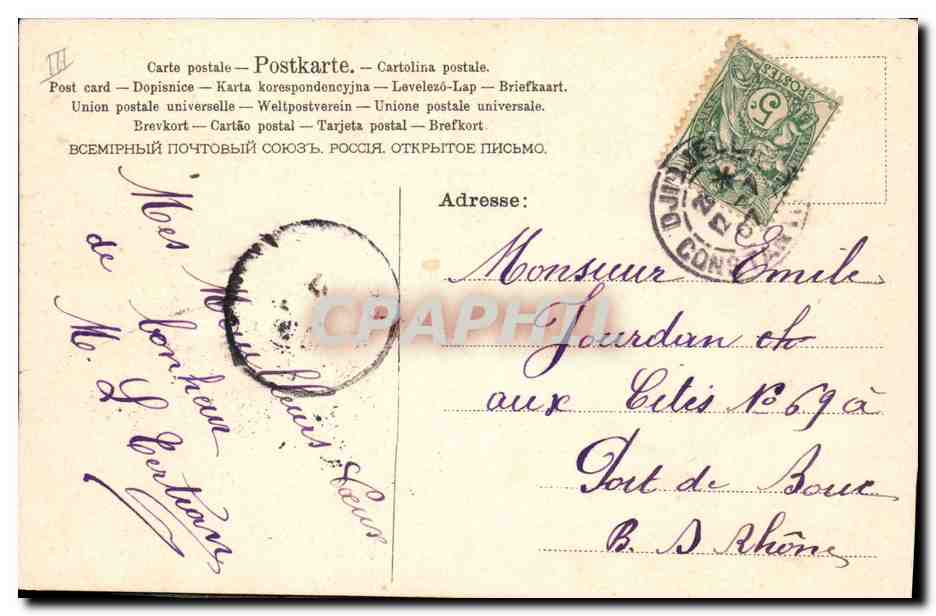 III
Carte postale — Postkarte. — Cartolina postale.
Post card — Dopisnice — Karta korespondencyjna — Levelező-Lap — Briefkaart.
Union postale universelle — Weltpostverein — Unione postale universale.
Brevkort — Cartão postal — Tarjeta postal — Brefkort
ВСЕМІРНЫЙ ПОЧТОВЫЙ СОЮЗЪ. РОССІЯ. ОТКРЫТОЕ ПИСЬМО.
Mes Meuilleurs Vœux
de bonheur
M. L
Adresse:
5
POSTES
DJIDJELLI
CONSTANTINE
Monsieur Emile
Jourdan ch
aux Cités No 69 à
Port de Bouc
B. D Rhône
CPAPHIL